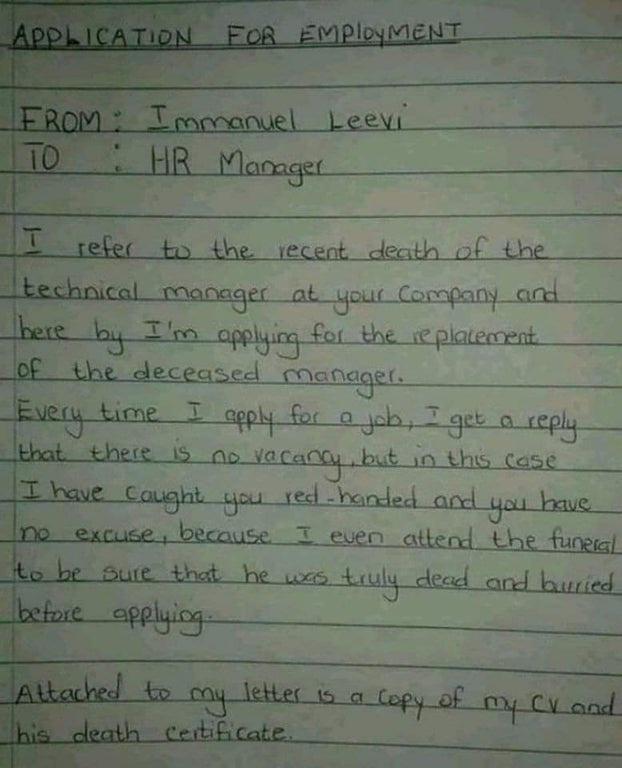 APPLICATION FOR EMPLOYMENT
FROM : Immanuel Leevi
TO : HR Manager
I refer to the recent death of the
technical manager at your company and
here by I'm applying for the replacement
of the deceased manager.
Every time I apply for a job, I get a reply
that there is no vacancy, but in this case
I have caught you red-handed and you have
no excuse, because I even attend the funeral
to be sure that he was truly dead and burried
before applying.
Attached to my letter is a copy of my CV and
his death certificate.